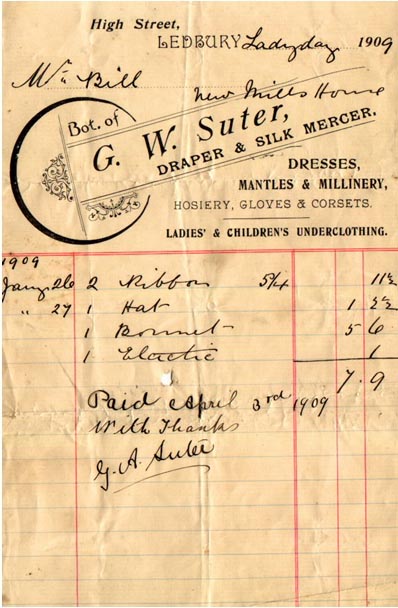 High Street,
LEDBURY Ladyday 1909
Mr Bill
New Mills House
Bot. of
G. W. Suter,
DRAPER & SILK MERCER.
DRESSES,
MANTLES & MILLINERY,
HOSIERY, GLOVES & CORSETS.
LADIES' & CHILDREN'S UNDERCLOTHING.
1909
Jany 26 2 Ribbon 5¾ 11½
" 27 1 Hat 1 2½
1 Bonnet 5 6
1 Elastic 1
7 . 9
Paid April 3rd 1909
With Thanks
G. A. Suter